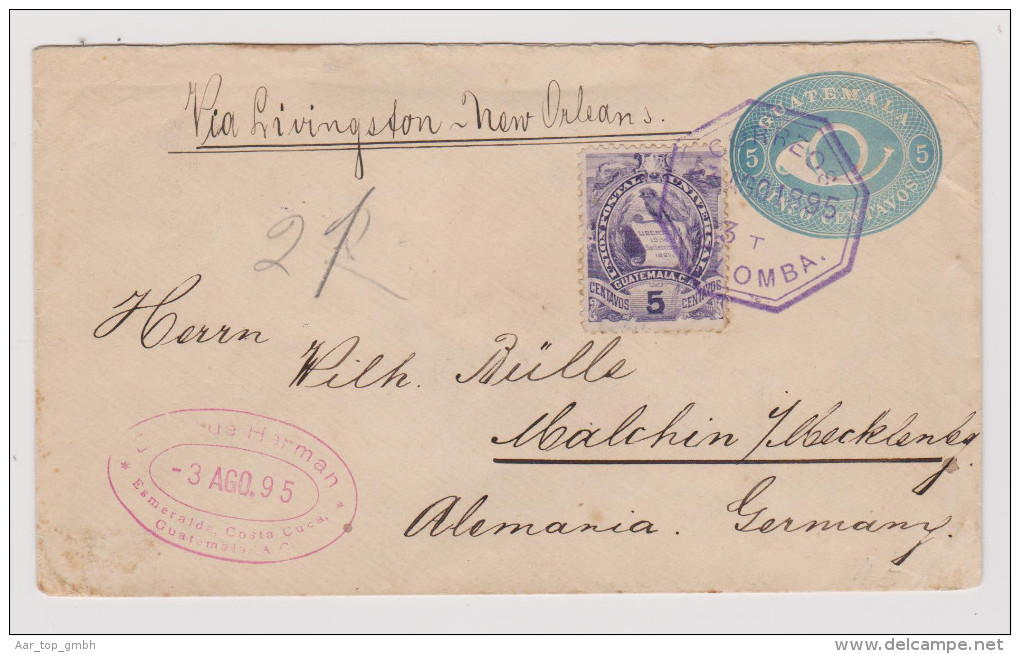 Via Livingston - New Orleans.
GUATEMALA
5 5
CINCO CENTAVOS
CORREOS
1895
3 T
OMBA.
UNION POSTAL UNIVERSAL
LIBERTAD
15 de
Setiembre
1821
GUATEMALA, C.A.
CENTAVOS 5 CENTAVOS
2R
Herrn
Wilh. Bülle
Malchin i/Mecklenbg
Alemania. Germany.
ue Herman
- 3 AGO. 95
* Esmeralda, Costa Cuca, *
Guatemala, A. C.
Aar_top_gmbh
www.delcampe.net